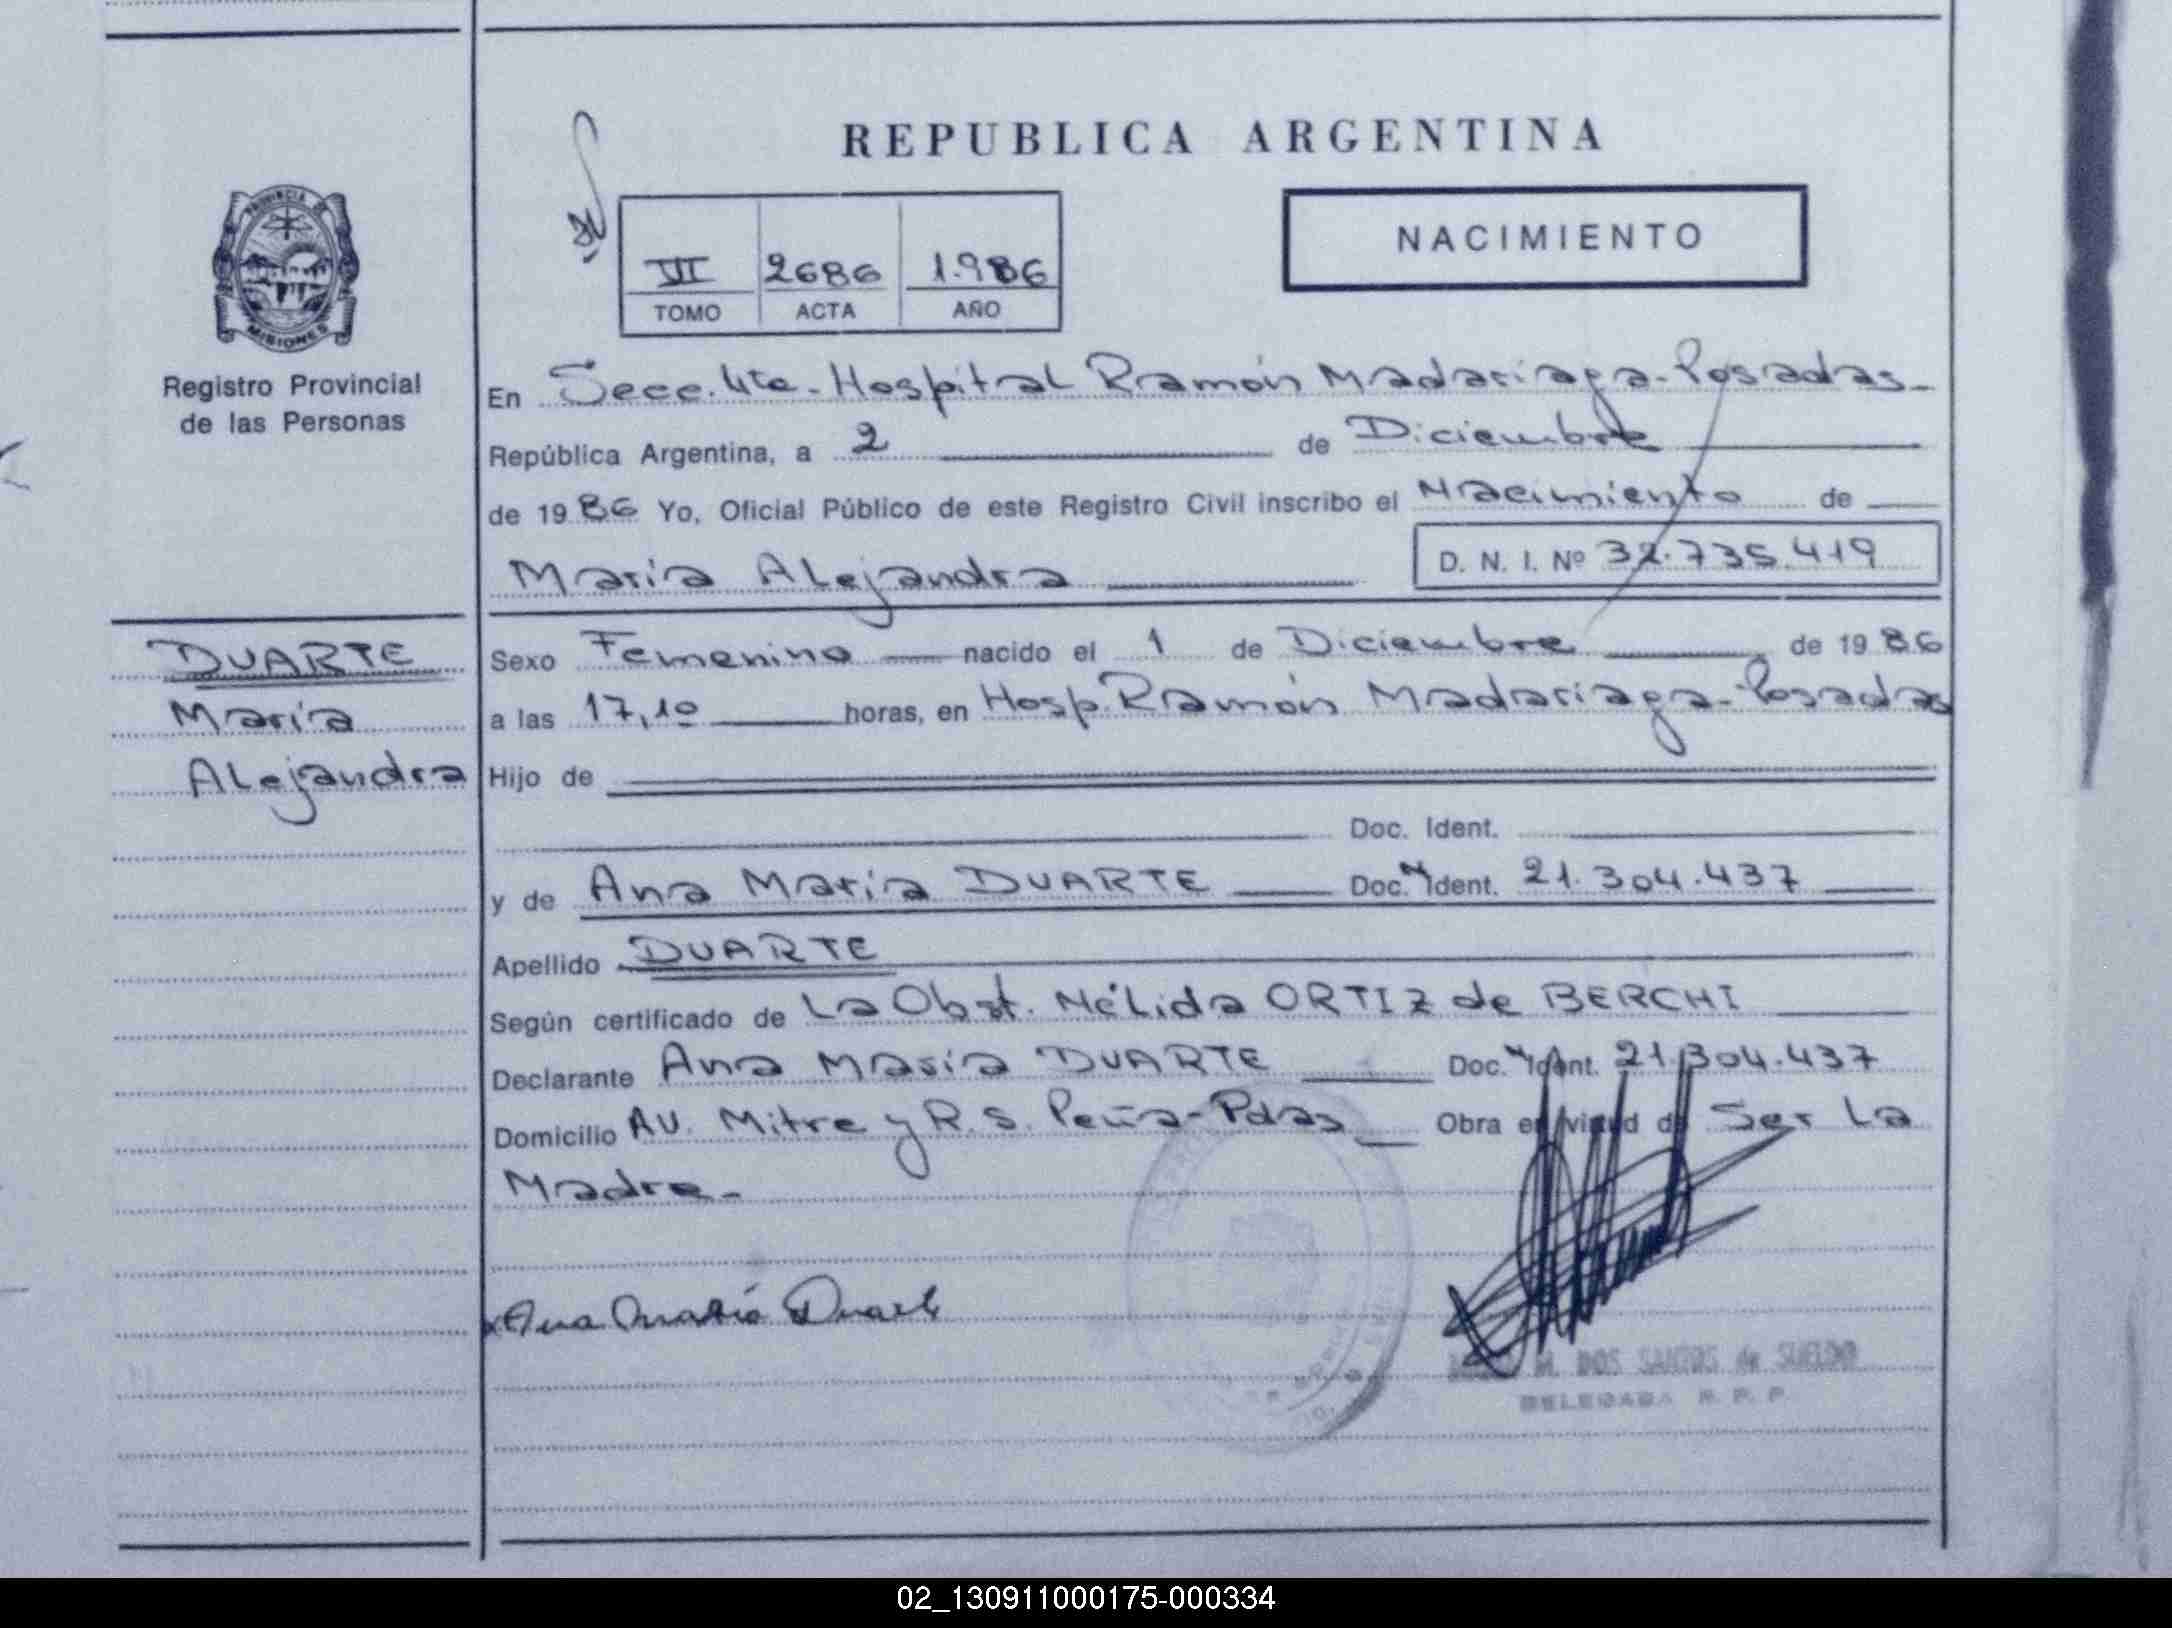 REPUBLICA ARGENTINA
NACIMIENTO
VII 2686 1.986
TOMO ACTA AÑO
PROVINCIA DE
MISIONES
Registro Provincial
de las Personas
En Secc. 4ta. Hospital Ramón Madariaga - Posadas -
República Argentina, a 2 de Diciembre
de 1986 Yo, Oficial Público de este Registro Civil inscribo el Nacimiento de
María Alejandra D. N. I. Nº 32.735.419
DUARTE
María
Alejandra
Sexo Femenino nacido el 1 de Diciembre de 1986
a las 17,10 horas, en Hosp. Ramón Madariaga - Posadas
Hijo de
Doc. Ident.
y de Ana María DUARTE Doc. Ident. 21.304.437
Apellido DUARTE
Según certificado de La Obst. Nélida ORTIZ de BERCHI
Declarante Ana María DUARTE Doc. Ident. 21.304.437
Domicilio AV. Mitre y R. S. Peña - Pdas Obra en virtud de Ser La
Madre -
Ana María Duarte
M. DOS SANTOS de SUELDO
DELEGADA R. P. P.
02_130911000175-000334